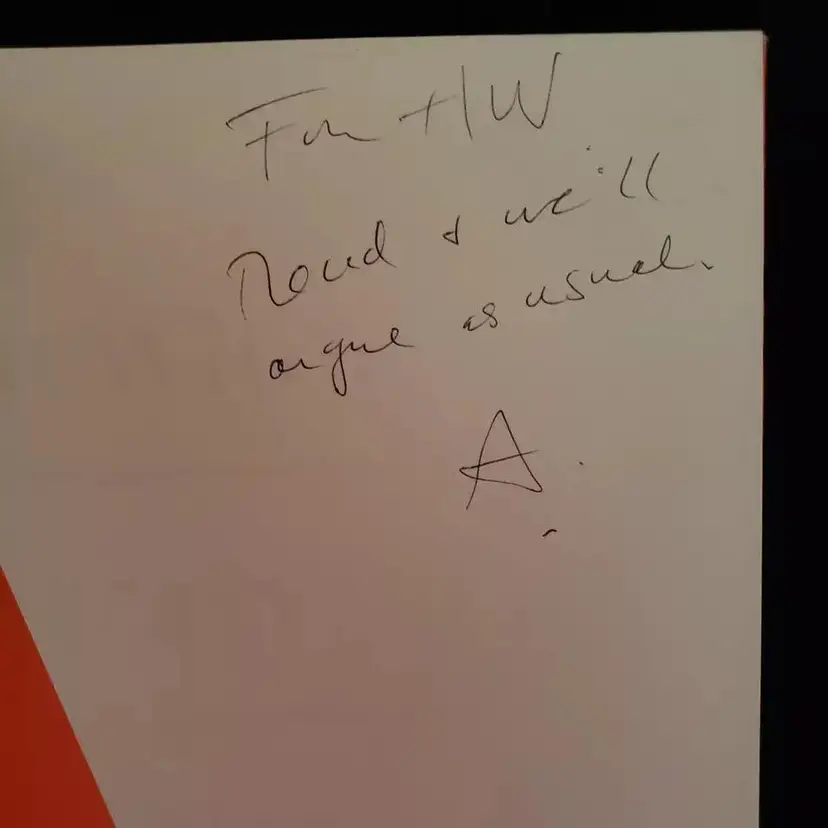 For HW
Read & we'll
argue as usual.
A.